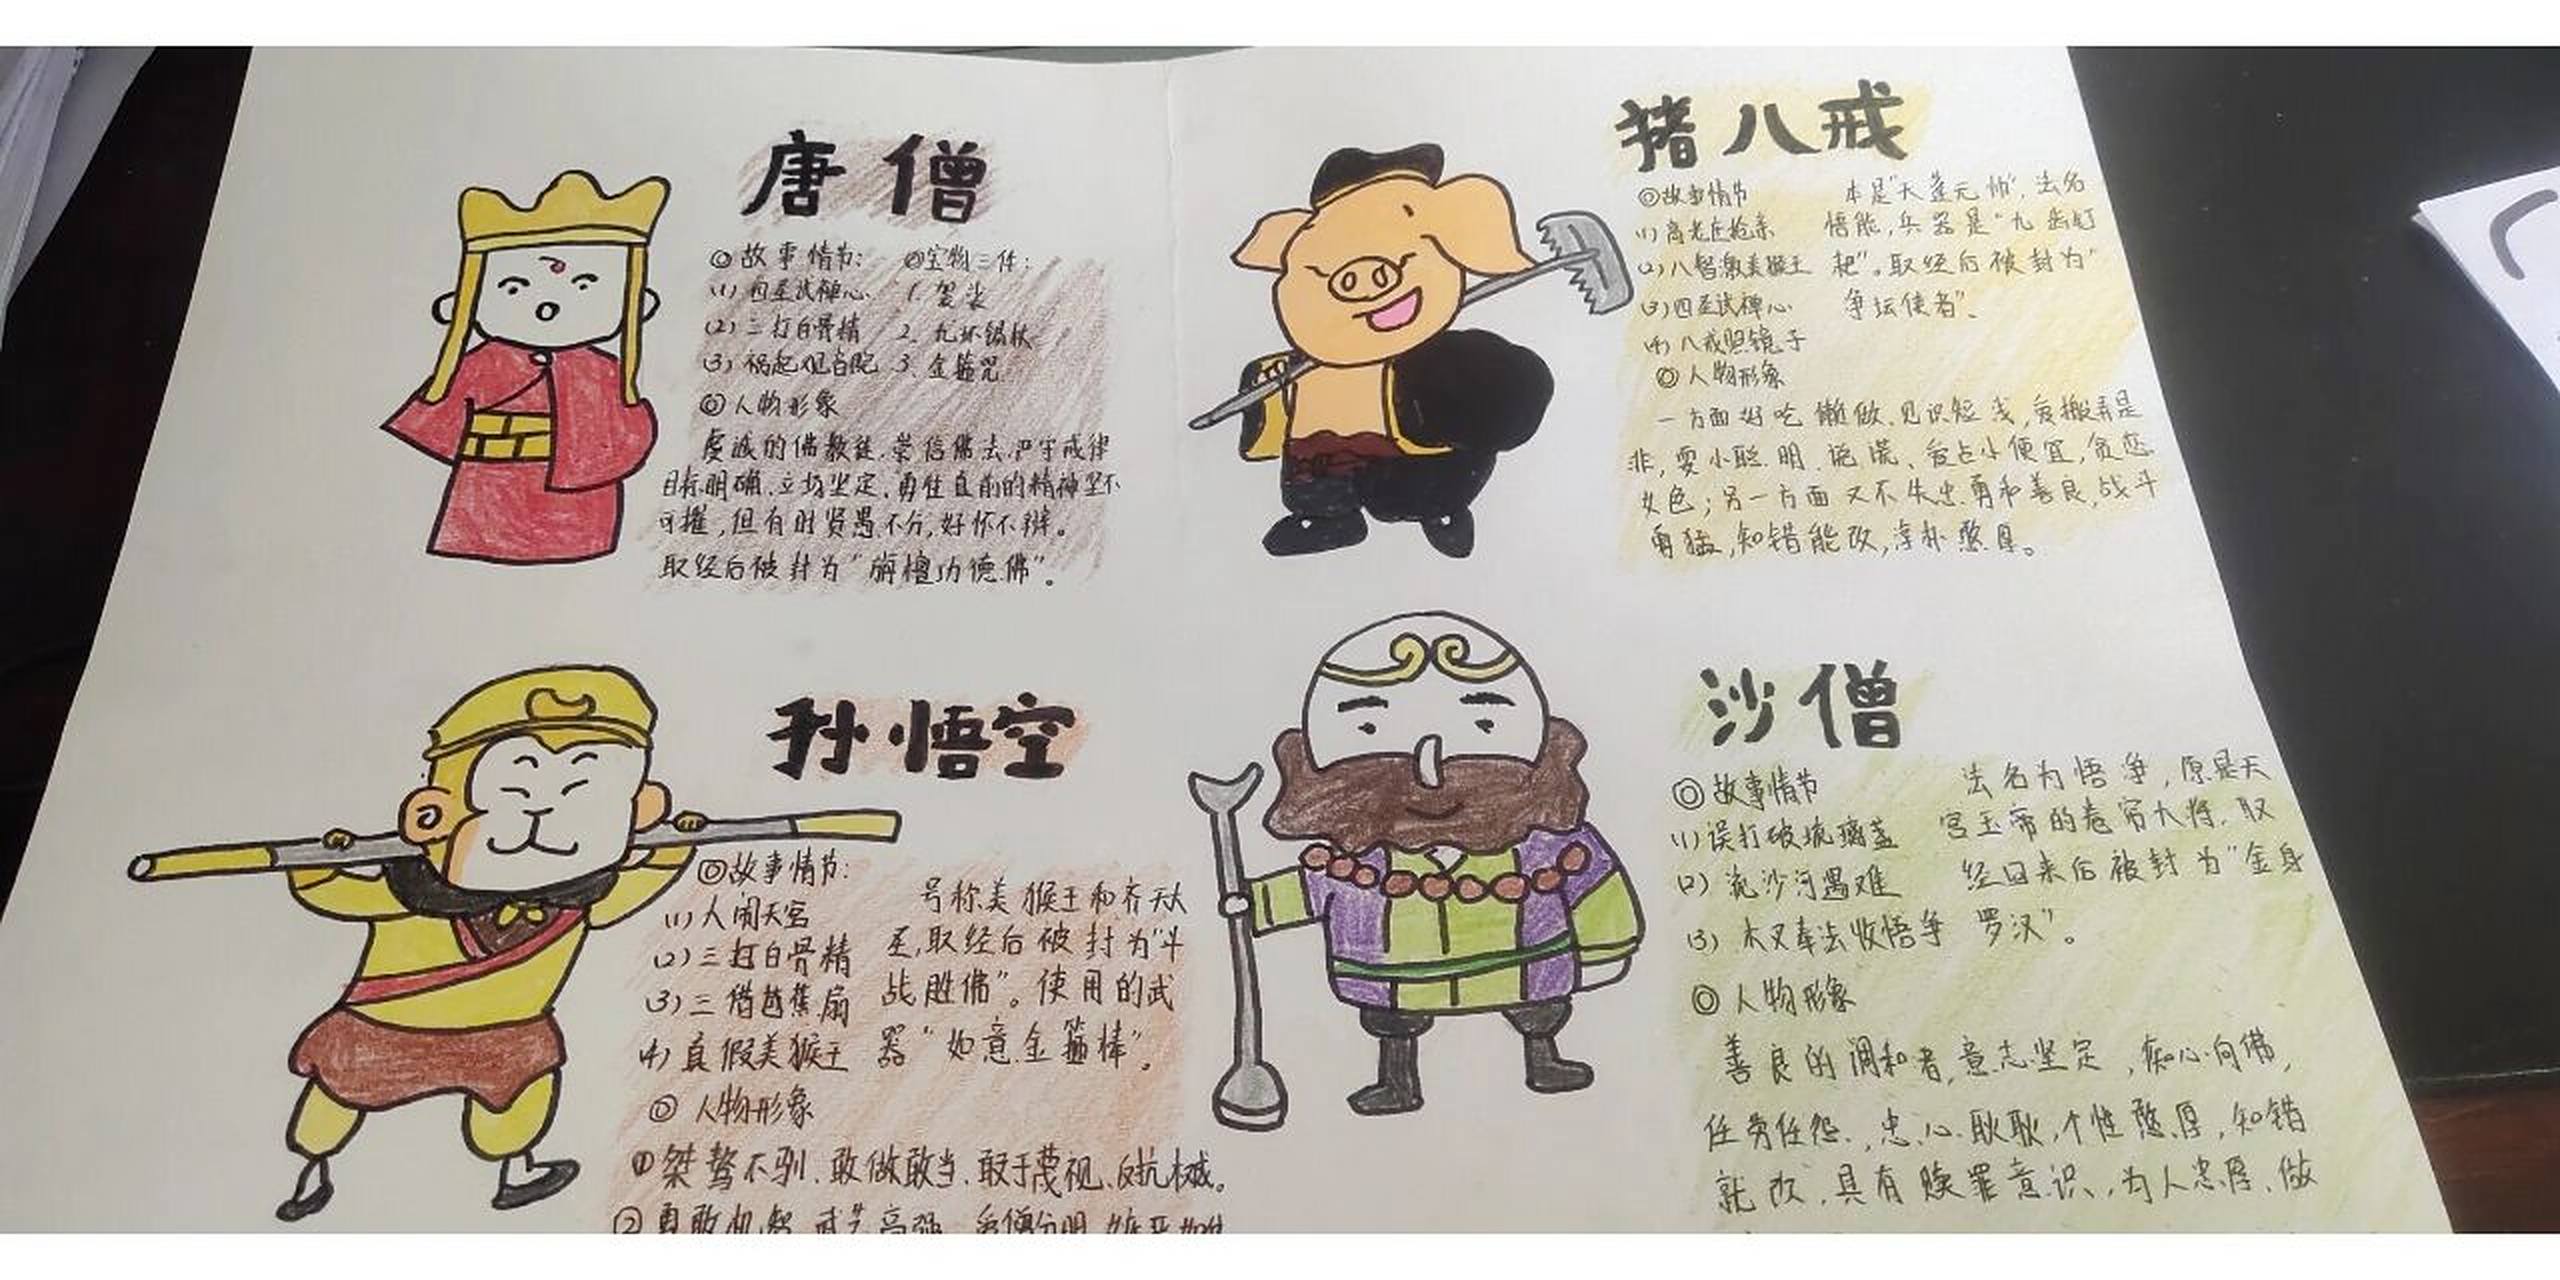 唐僧
◎故事情节:
(1) 四圣试禅心
(2) 三打白骨精
(3) 祸起观音院
◎宝物三件:
1. 袈裟
2. 九环锡杖
3. 金箍咒
◎人物形象
虔诚的佛教徒.崇信佛法.严守戒律
目标明确.立场坚定.勇往直前的精神坚不
可摧,但有时贤愚不分,好怀不辩。
取经后被封为“旃檀功德佛”。
猪八戒
◎故事情节
(1) 高老庄抢亲
(2) 八智激美猴王
(3) 四圣试禅心
(4) 八戒照镜子
本是“天蓬元帅”,法名
悟能,兵器是“九齿钉
耙”。取经后被封为“
净坛使者”、
◎人物形象
一方面好吃懒做.见识短浅,爱搬弄是
非,耍小聪明.说谎、爱占小便宜,贪恋
女色;另一方面又不失忠勇和善良,战斗
勇猛,知错能改,淳朴憨厚。
孙悟空
◎故事情节:
(1) 大闹天宫
(2) 三打白骨精
(3) 三借芭蕉扇
(4) 真假美猴王
号称美猴王和齐天大
圣,取经后被封为“斗
战胜佛”。使用的武
器“如意金箍棒”。
◎人物形象
①桀骜不驯.敢做敢当.敢于蔑视、反抗权威。
②勇敢机智 武艺高强
沙僧
◎故事情节
(1) 误打破琉璃盏
(2) 流沙河遇难
(3) 木叉奉法收悟净
法名为悟净,原是天
宫玉帝的卷帘大将.取
经回来后被封为“金身
罗汉”。
◎人物形象
善良的调和者,意志坚定,痴心向佛,
任劳任怨.,忠心耿耿,个性憨厚,知错
就改.具有赎罪意识、,为人忠厚、做